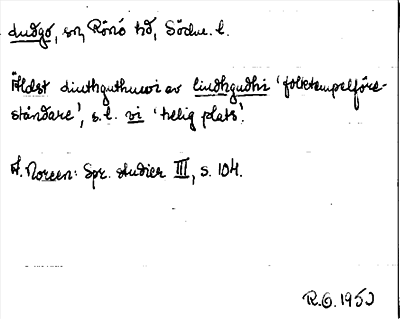 Ludgo, sn, Rönö hd, Södm. l.
Äldst liuthguthuwi av liudhgudhi 'folktempelföre-
ståndare', s. l. vi 'helig plats'.
A. Noreen: Spr. studier III, s. 104.
R.O. 1950